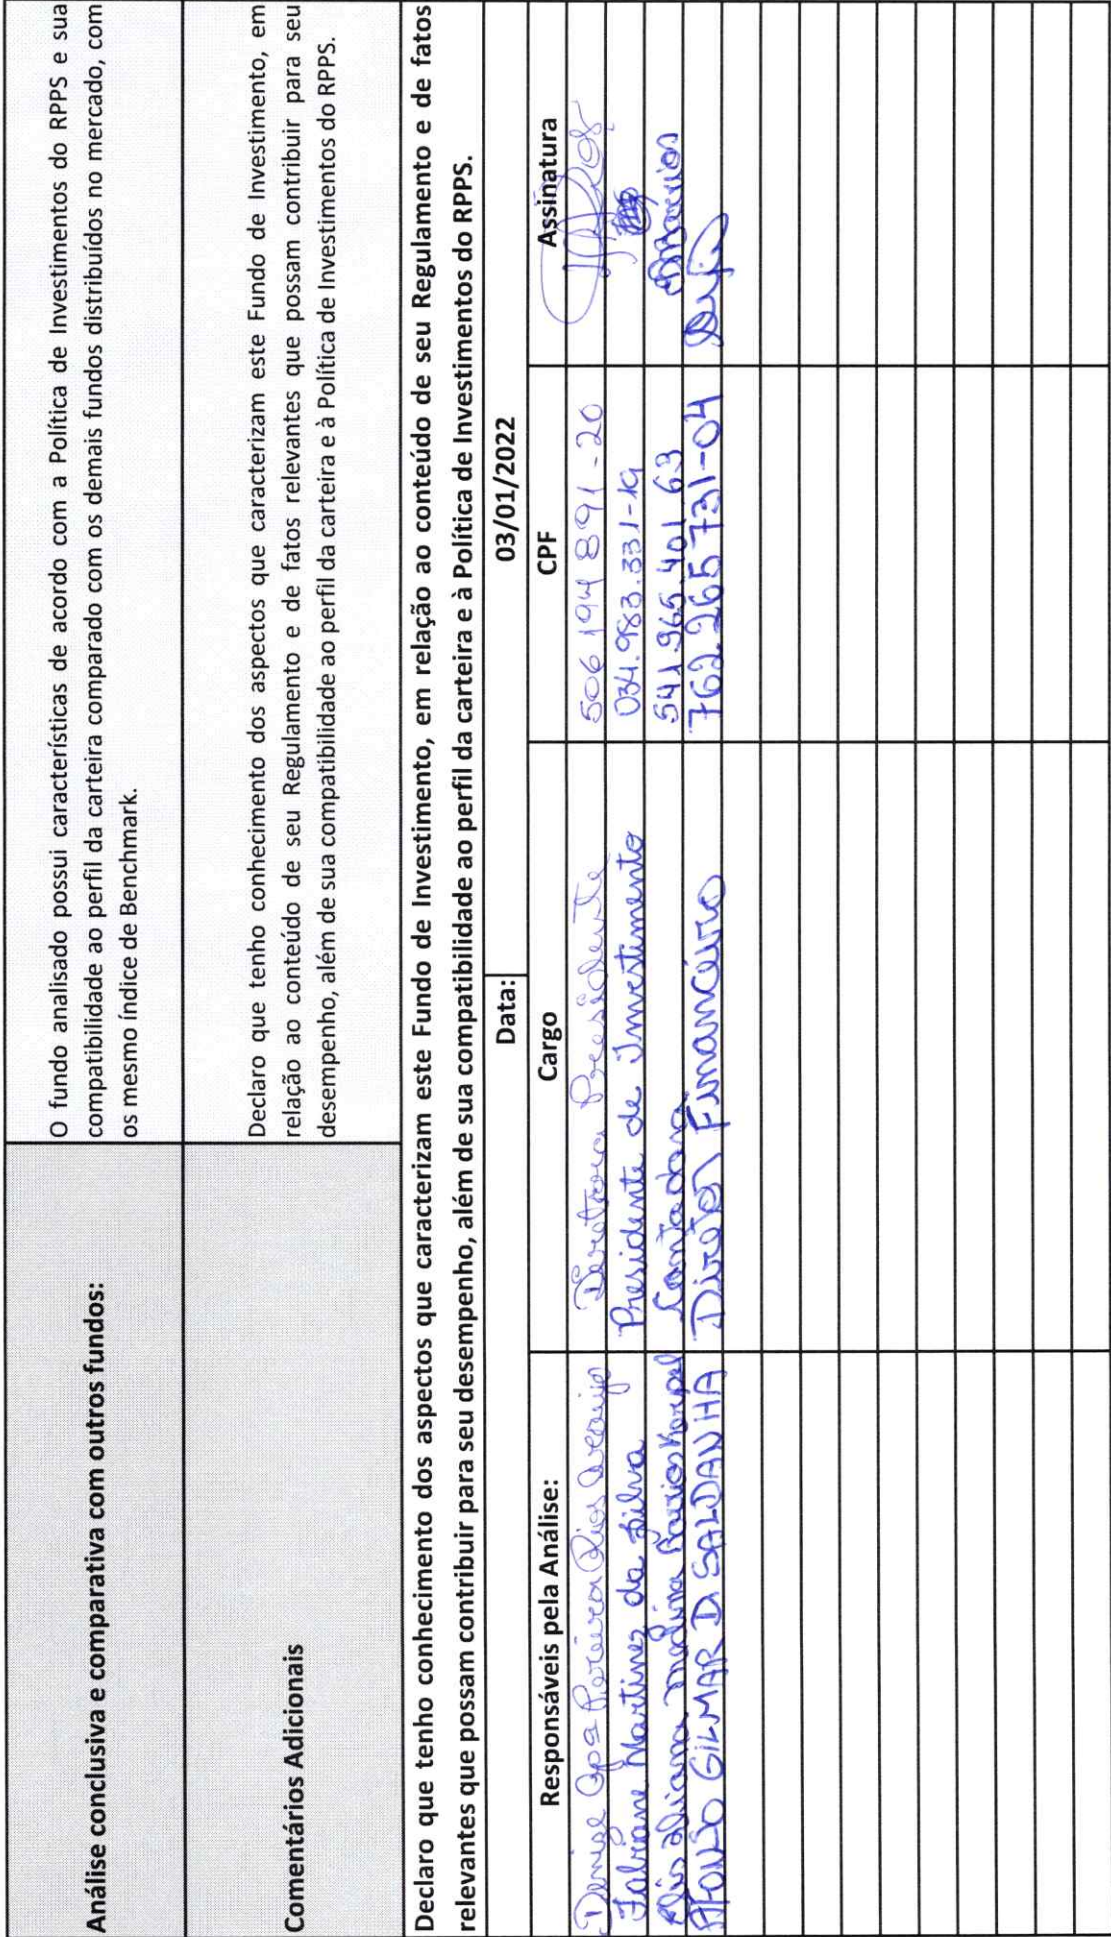 Análise conclusiva e comparativa com outros fundos:
O fundo analisado possui características de acordo com a Política de Investimentos do RPPS e sua
compatibilidade ao perfil da carteira comparado com os demais fundos distribuídos no mercado, com
os mesmo índice de Benchmark.
Comentários Adicionais
Declaro que tenho conhecimento dos aspectos que caracterizam este Fundo de Investimento, em
relação ao conteúdo de seu Regulamento e de fatos relevantes que possam contribuir para seu
desempenho, além de sua compatibilidade ao perfil da carteira e à Política de Investimentos do RPPS.
Declaro que tenho conhecimento dos aspectos que caracterizam este Fundo de Investimento, em relação ao conteúdo de seu Regulamento e de fatos
relevantes que possam contribuir para seu desempenho, além de sua compatibilidade ao perfil da carteira e à Política de Investimentos do RPPS.
Data: 03/01/2022
Responsáveis pela Análise: Cargo CPF Assinatura
Denise Apª Pereira Rios Araujo Diretora Presidente 506 194 891-20
Fabiane Martinez da Silva Presidente de Investimento 034.983.331-19
medina Barrios Contadora 541.965.401 63 Barrios
GILMAR D SALDANHA Diretor Financeiro 762.265 731-04